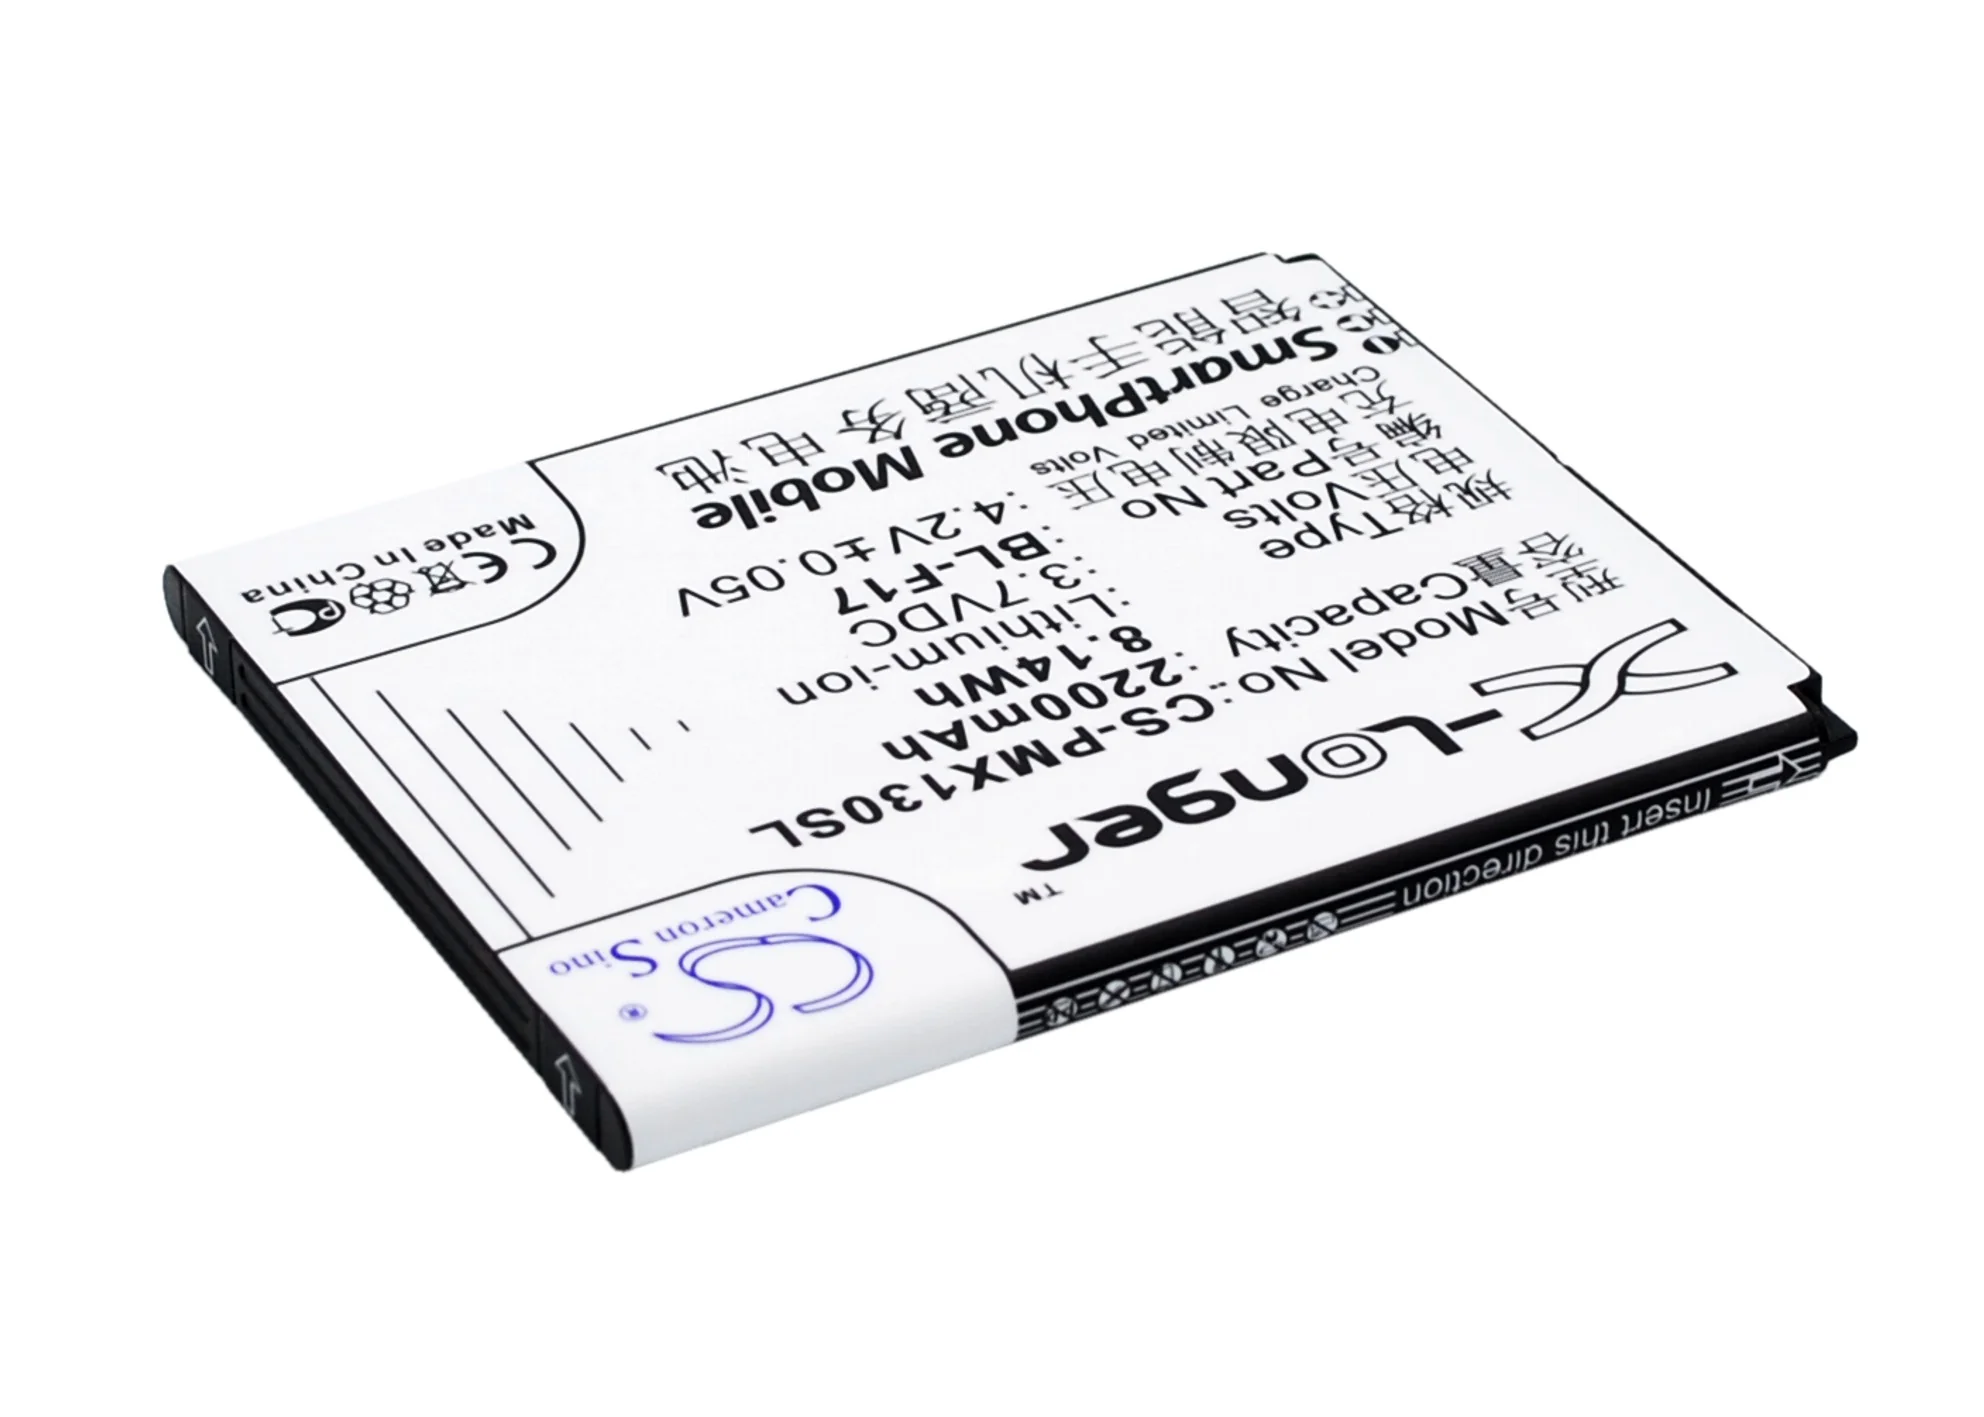 X-Longer™
型号Model No.:CS-PMX130SL
容量Capacity :2200mAh
8.14Wh
规格Type :Lithium-ion
电压Volts :3.7VDC
编号Part No :BL-F17
充电限制电压 :4.2V±0.05V
Charge Limited Volts
SmartPhone Mobile
智能手机商务电池
Cameron Sino
CS®
CE
Made In China
Insert this direction